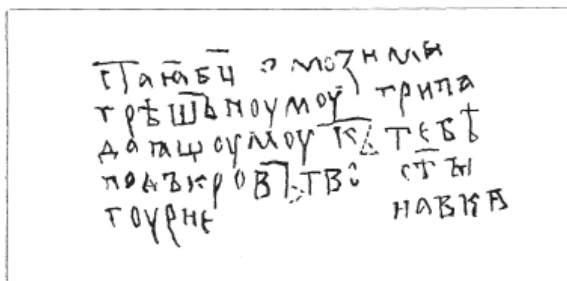 с҃таꙗб҃ц помозими
грѣшъноумоу припа
дапащоумоу къ тебѣ
подъкровътво с҃ты
гоурне навка